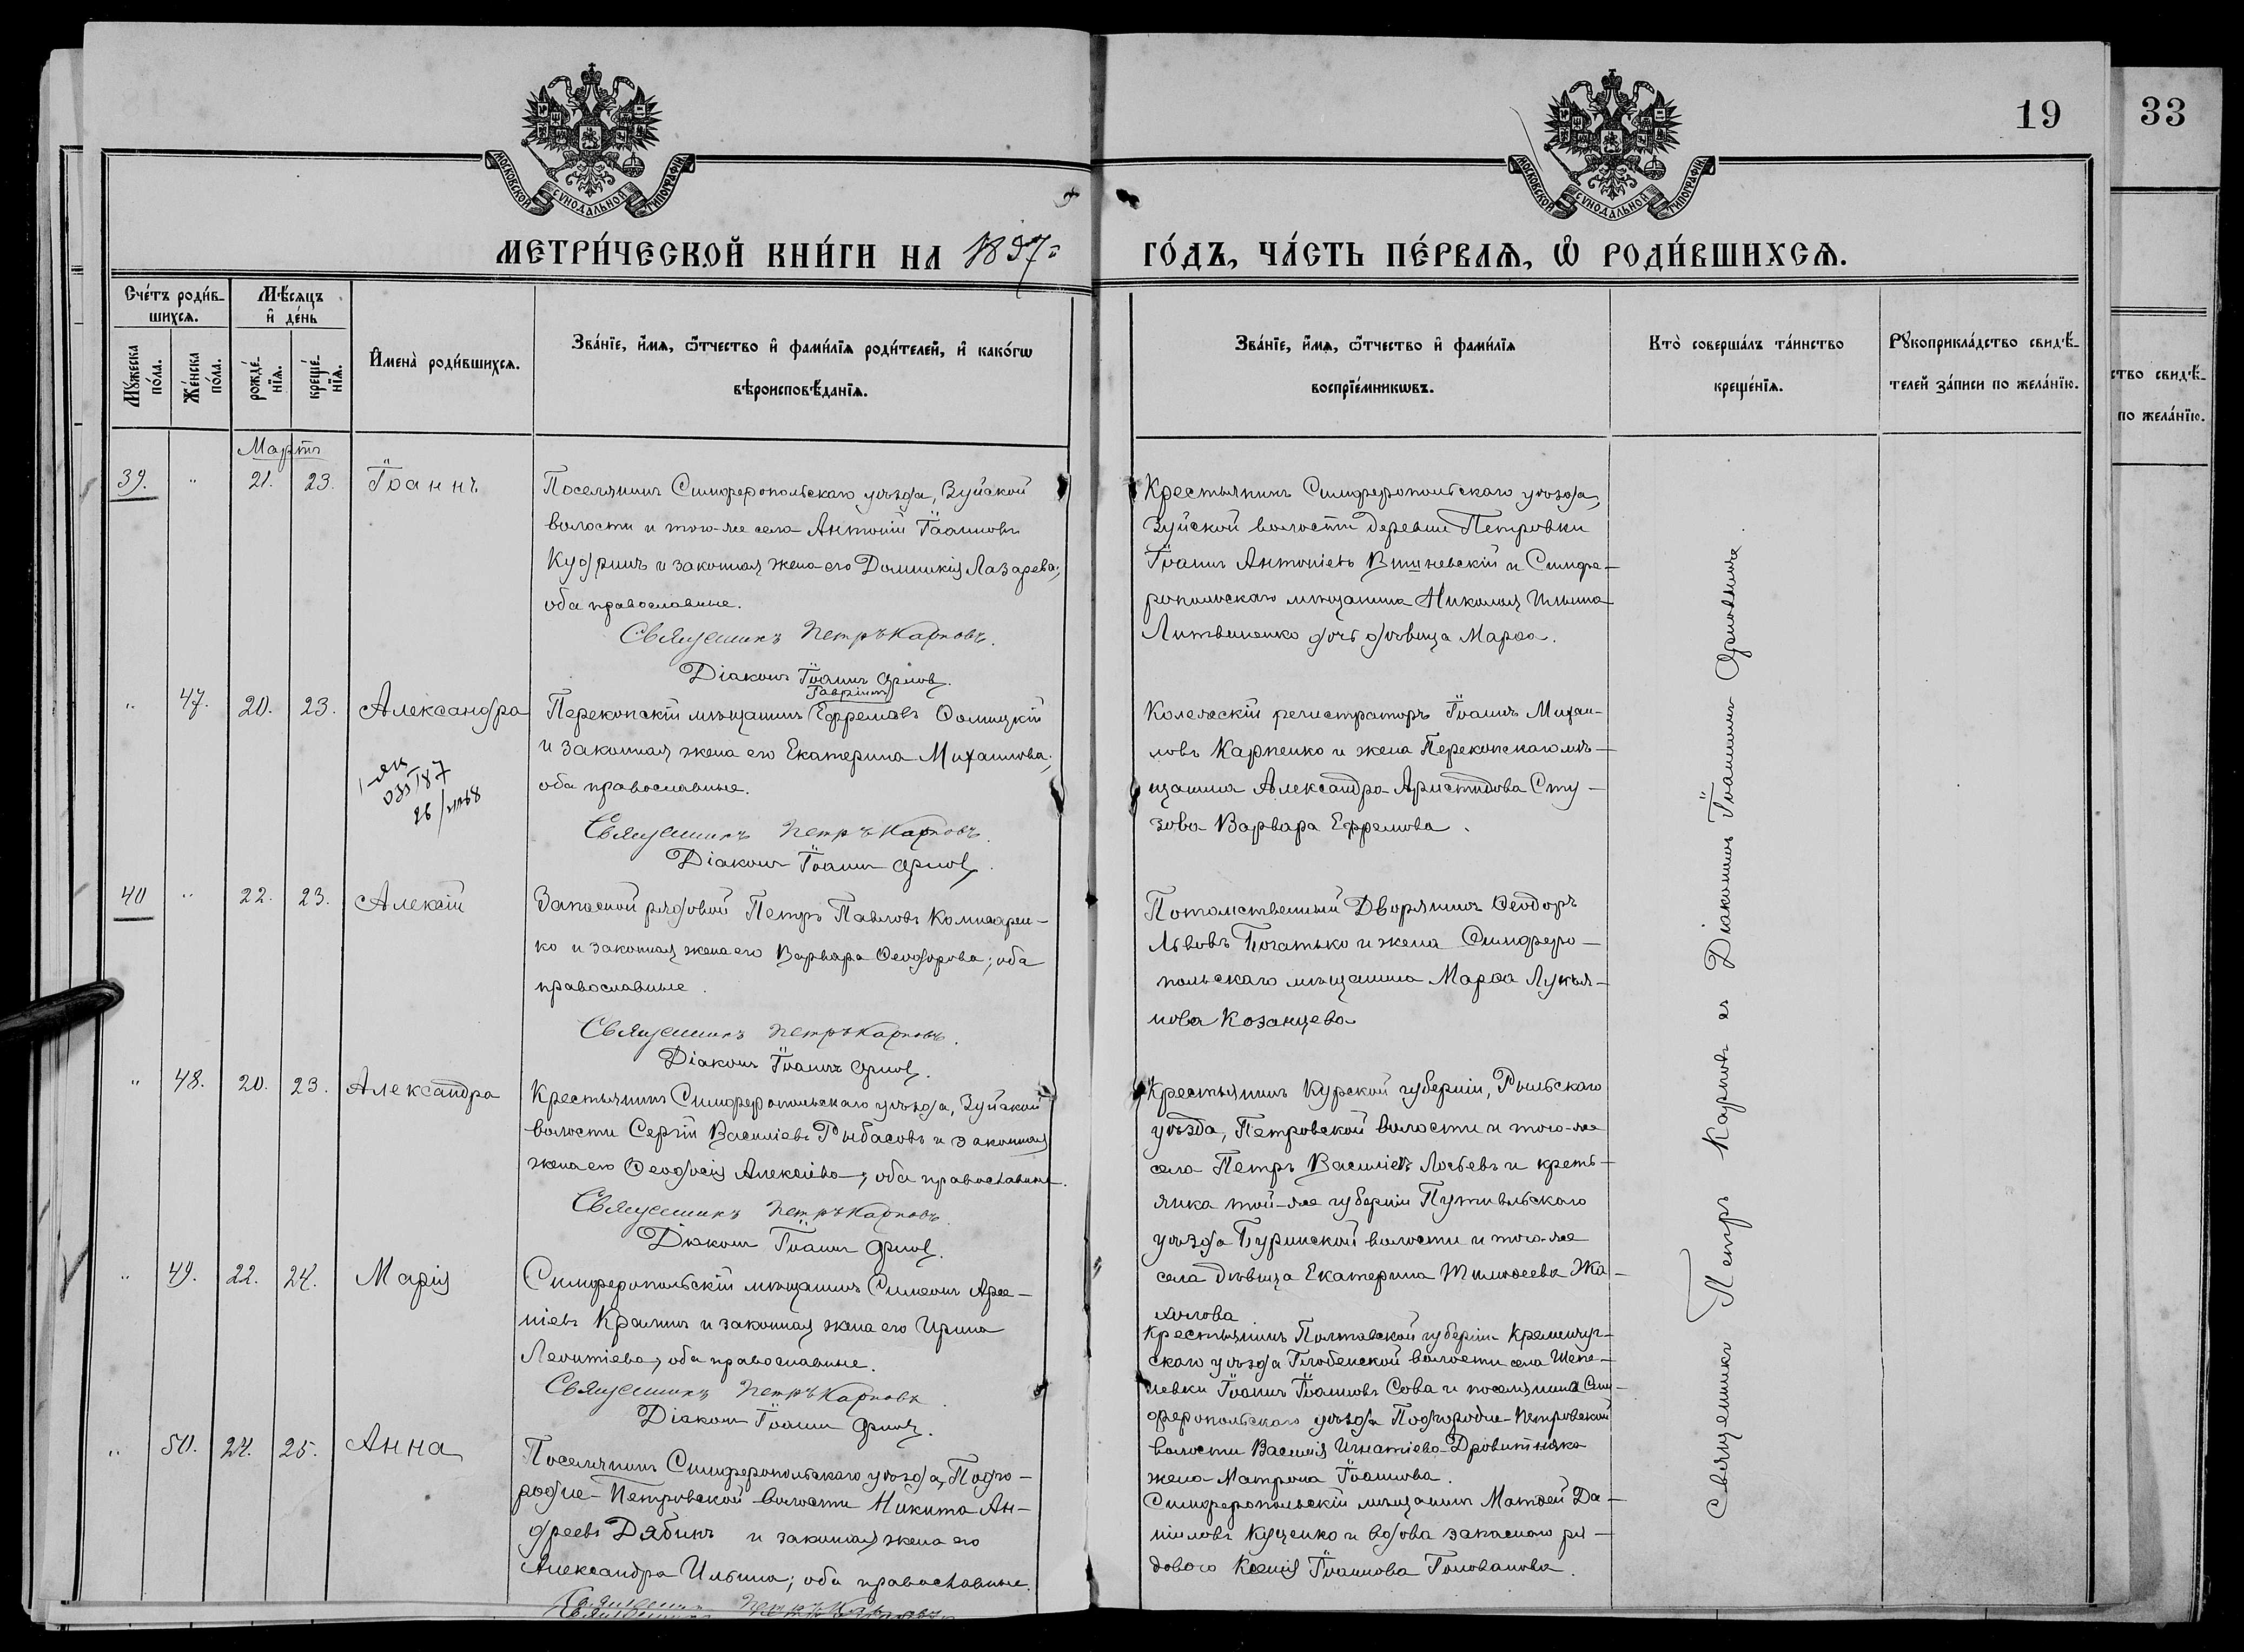 19
33
МОСКОВСКОЙ СѴНОДАЛЬНОЙ ТИПОГРАФІИ
МОСКОВСКОЙ СѴНОДАЛЬНОЙ ТИПОГРАФІИ
МЕТРИ́ЧЕСКОЙ КНИ́ГИ НА 1897
ГО́ДЪ, ЧА́СТЬ ПЕ́РВАѦ, Ѽ РОДИ́ВШИХСѦ.
Сче́тъ роди́в-
шихсѧ.
Мꙋ́жеска
по́ла.
Же́нска
по́ла.
Мѣ́сѧцъ
и҆ де́нь
рожде́-
нїѧ.
креще́-
нїѧ.
И҆мена̀ роди́вшихсѧ.
Зва́нїе, и҆́мѧ, ѻ҆́тчество и҆ фами́лїѧ роди́телей, и҆ како́гѡ
вѣроисповѣ́данїѧ.
Зва́нїе, и҆́мѧ, ѻ҆́тчество и҆ фами́лїѧ
воспрїе́мникѡвъ.
Кто̀ соверша́лъ та́инство
креще́нїѧ.
Рꙋкоприкла́дство свидѣ́-
телей за́писи по жела́нїю.
ство свидѣ́-
по жела́нїю.
Мартъ
39. " 21. 23. Іоаннъ
Поселянинъ Симферопольскаго уѣзда, Зуйской
волости и того-же села Антоній Іоанновъ
Кудринъ и законная жена его Домникія Лазарева;
оба православные.
Священникъ Петръ Карповъ.
Діаконъ Іоаннъ Орлов.
Крестьянинъ Симферопольскаго уѣзда,
Зуйской волости деревни Петровки
Іоаннъ Антоніевъ Вишневскій и Симфе-
ропольскаго мѣщанина Николая Ильина
Литвиненко дочь дѣвица Марѳа.
" 47. 20. 23. Александра
Перекопскій мѣщанинъ Ефремовъ Ѳомицкій
и законная жена его Екатерина Михаилова;
оба православные.
Священникъ Петръ Карповъ.
Діаконъ Іоаннъ Орлов.
Колежскій регистраторъ Іоаннъ Михаи-
ловъ Карпенко и жена Перекопскаго мѣ-
щанина Александра Аристидова Сту-
зова Варвара Ефремова.
40 " 22. 23. Алексій
Запасной рядовой Петръ Павловъ
ко и законная жена его Варвара Ѳеодорова; оба
православные.
Священникъ Петръ Карповъ.
Діаконъ Іоаннъ Орлов.
Потомственный Дворянинъ Ѳеодоръ
Львовъ Богатько и жена Симферо-
польскаго мѣщанина Марѳа Лукья-
нова Козанцева
" 48. 20. 23. Александра
Крестьянинъ Симферопольскаго уѣзда, Зуйской
волости Сергій Василіевъ Рыбасовъ и законная
жена его Ѳеодосія Алексіева; оба православные.
Священникъ Петръ Карповъ.
Діаконъ Іоаннъ Орлов.
Крестьянинъ Курской губерніи, Рыльскаго
уѣзда, Петровской волости и того-же
села Петръ Василіевъ Лосьевъ и кресть-
янка той-же губерніи Путивльскаго
уѣзда Буринской волости и того-же
села дѣвица Екатерина Тимоѳеева
" 49. 22. 24. Марія
Симферопольскій мѣщанинъ Симеонъ Арсе-
ніевъ и законная жена его Ирина
Леонтіева; оба православные.
Священникъ Петръ Карповъ.
Діаконъ Іоаннъ Орлов.
Крестьянинъ Полтавской губерніи Кременчуг-
скаго уѣзда Глобенской волости села Шепе-
левки Іоаннъ Іоанновъ Сова и поселянина Сим-
феропольскаго уѣзда Подгородне-Петровской
волости Василія Игнатіева
жена Матрона Іоаннова.
" 50. 24. 25. Анна
Поселянинъ Симферопольскаго уѣзда, Подго-
родне-Петровской волости Никита Ан-
дреевъ Дябинъ и законная жена его
Александра Ильина; оба православные.
Священникъ Петръ Карповъ
Симферопольскій мѣщанинъ Матѳей Да-
ніиловъ Куценко и вдова запасного ря-
дового Ксенія Іоаннова Голованова.
Священникъ Петръ Карповъ съ Діакономъ Іоанномъ Орловымъ